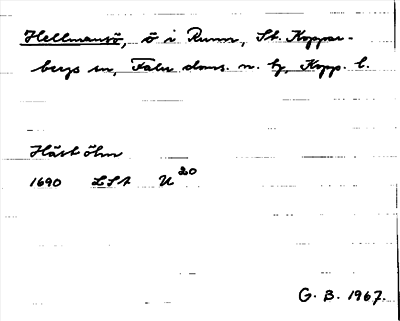 Hellmansö, ö i Runn, St. Koppar-
bergs sn, Falu doms. n. tg, Kopp. l.
Häst ölm
1690 LSA U 20
G. B. 1967.